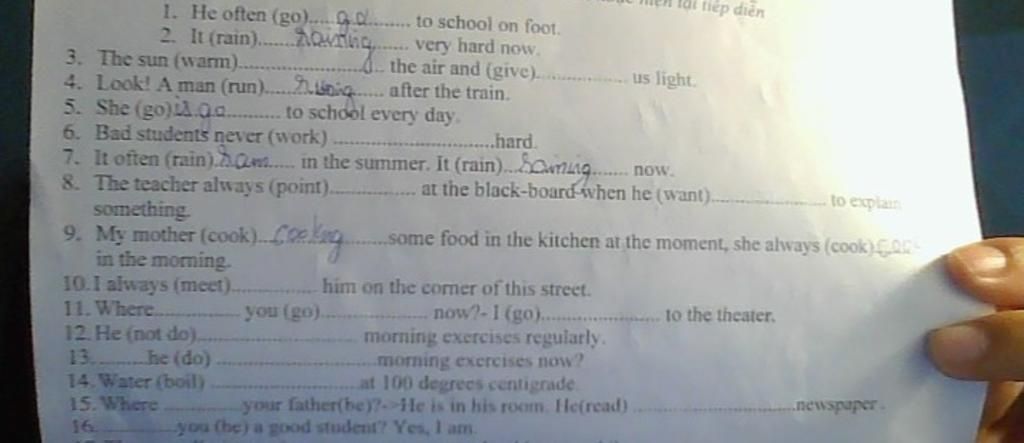 hiện tại tiếp diễn
1. He often (go)....go......... to school on foot.
2. It (rain)......raining....... very hard now.
3. The sun (warm)........................... the air and (give)................. us light.
4. Look! A man (run)......runing...... after the train.
5. She (go)is go........... to school every day.
6. Bad students never (work) ..............................hard.
7. It often (rain).rain...... in the summer. It (rain)...raining....... now.
8. The teacher always (point)................ at the black-board-when he (want)...................... to explain
something.
9. My mother (cook)...cooking.........some food in the kitchen at the moment, she always (cook)
in the morning.
10. I always (meet)................ him on the corner of this street.
11. Where................ you (go).................... now?- I (go)...................... to the theater.
12. He (not do).............................. morning exercises regularly.
13..........he (do) ..............................morning exercises now?
14. Water (boil) ...........................at 100 degrees centigrade.
15. Where ...............your father(be)?->He is in his room. He(read) ..............................newspaper.
16................you (be) a good student? Yes, I am.